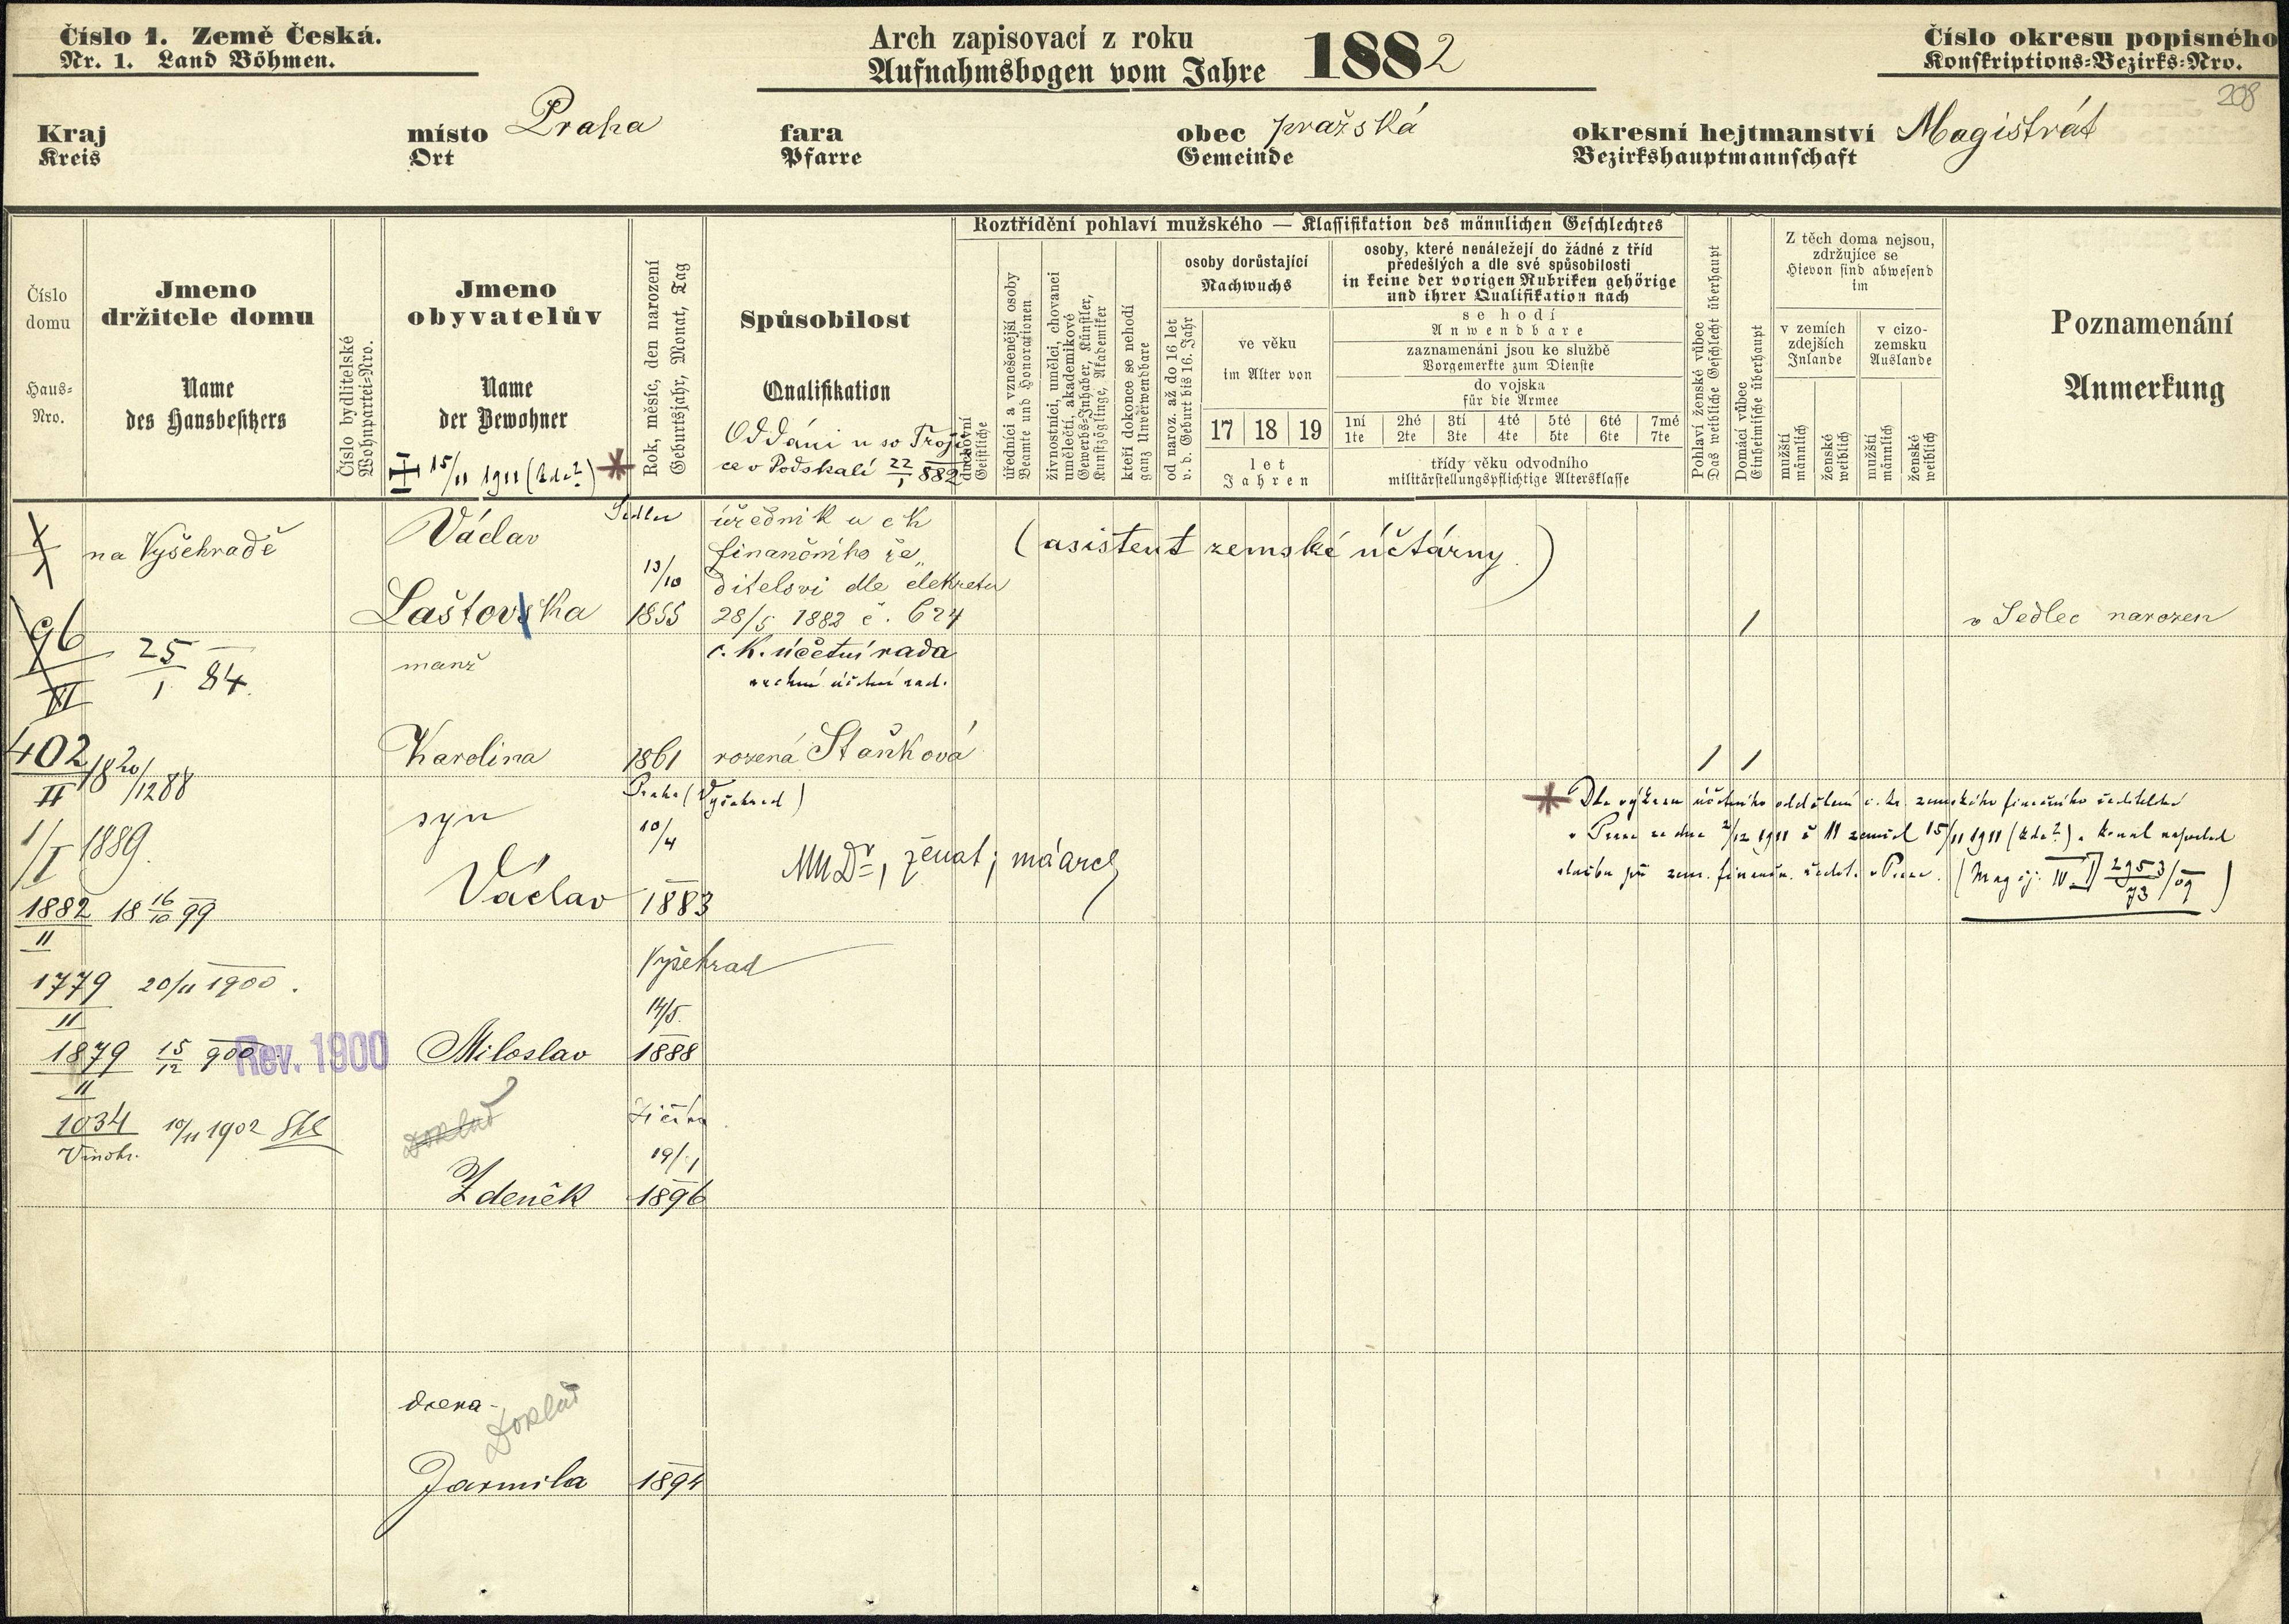 Číslo 1. Země Česká.
Nr. 1. Land Böhmen.
Arch zapisovací z roku
Aufnahmsbogen vom Jahre
1882
Číslo okresu popisného
Konskriptions-Bezirks-Nro.
208
Kraj
Kreis
místo Praha
Ort
fara
Pfarre
obec pražská
Gemeinde
okresní hejtmanství Magistrát
Bezirkshauptmannschaft
Číslo domu
Haus-Nro.
Jmeno držitele domu
Name des Hausbesitzers
Číslo bydlitelské
Wohnpartei-Nro.
Jmeno obyvatelův
Name der Bewohner
15/11 1911 (kde?) *
Rok, měsíc, den narození
Geburtsjahr, Monat, Tag
Spůsobilost
Qualifikation
Oddáni u sv Trojice
v Podskalí 22/1 882
Roztřídění pohlaví mužského — Klassifikation des männlichen Geschlechtes
duchovní
Geistliche
úředníci a vznešenější osoby
Beamte und Honorationen
živnostníci, umělci, chovanci umělečtí, akademikové
Gewerbs-Inhaber, Künstler, Kunstzöglinge, Akademiker
kteří dokonce se nehodí
ganz Unverwendbare
osoby dorůstající
Nachwuchs
od naroz. až do 16 let
v. d. Geburt bis 16. Jahr
ve věku
im Alter von
17 18 19
let
Jahren
osoby, které nenáležejí do žádné z tříd
předešlých a dle své spůsobilosti
in keine der vorigen Rubriken gehörige
und ihrer Qualifikation nach
se hodí
Anwendbare
zaznamenáni jsou ke službě
Vorgemerkte zum Dienste
do vojska
für die Armee
1ní 2hé 3tí 4té 5té 6té 7mé
1te 2te 3te 4te 5te 6te 7te
třídy věku odvodního
militärstellungspflichtige Altersklasse
Pohlaví ženské vůbec
Das weibliche Geschlecht überhaupt
Domácí vůbec
Einheimische überhaupt
Z těch doma nejsou,
zdržujíce se
Hievon sind abwesend
im
v zemích zdejších
Inlande
v cizozemsku
Auslande
mužští
männlich
ženské
weiblich
mužští
männlich
ženské
weiblich
Poznamenání
Anmerkung
na Vyšehradě
Václav
Sedlec
úředník u ck
finančního ře„
ditelsvi dle dekretu
28/5 1882 č. 624
(asistent zemské účtárny)
13/10
1855
Laštovska
1
v Sedlec narozen
96
VI
25/1 84.
manž
c. k. účetní rada
vrchní účetní rad.
Karolina
1861
rozená Staňková
1 1
402
II
18 20/12 88
Praha (Vyšehrad)
syn
10/4
Václav
1883
MUDr, ženat; má arch
* Dle výkazu účetního oddělení c. k. zemského finančního ředitelství
v Praze ze dne 2/12 1911 č 11 zemřel 15/11 1911 (kde?).
službu při zem. finanč. ředit. v Praze. (Mag čj. IV 2953/73/09)
1/I 1889.
1882
II
18 16/10 99
Vyšehrad
1779
II
20/11 1900.
14/5.
Miloslav
1888
1879
II
15/12 900
Rev. 1900
1034
Vinohr.
10/11 1902
Doklad
19/1
Zdeněk
1896
dcera
Doklad
Jarmila
1894